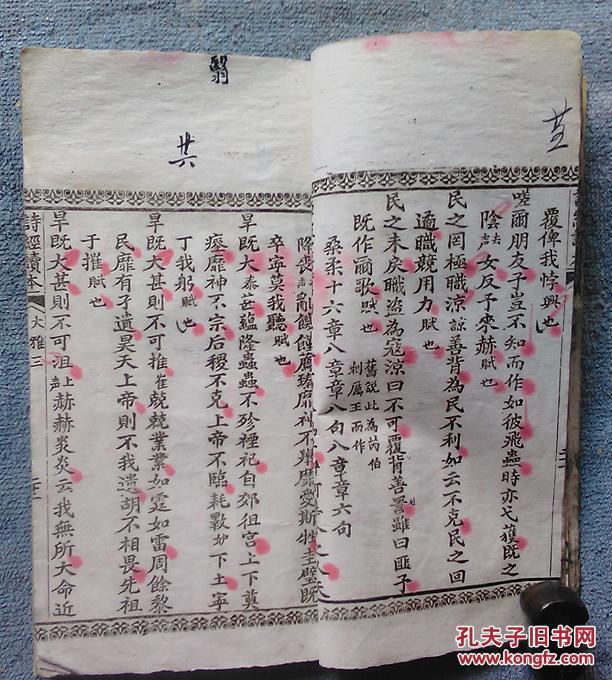 翳
廿六
覆俾我悖興也
嗟爾朋友予豈不知而作如彼飛蟲時亦弋獲既之
陰去聲女反予來赫賦也
民之罔極職涼諒善背為民不利如云不克民之回
遹職競用力賦也
民之未戾職盜為寇涼曰不可覆背善詈雖曰匪予
既作爾歌賦也
桑柔十六章八章章八句八章章六句
舊說此為芮伯
刺厲王而作
卒寧莫我聽賦也
旱既大泰甚蘊隆蟲蟲不殄禋祀自郊徂宮上下奠
瘞靡神不宗后稷不克上帝不臨耗斁如下土寧
丁我躬賦也
旱既大甚則不可推兢兢業業如霆如雷周餘黎
民靡有孑遺昊天上帝則不我遺胡不相畏先祖
于摧賦也
旱既大甚則不可沮上聲赫赫炎炎云我無所大命近
詩經讀本
大雅三
孔夫子旧书网
www.kongfz.com